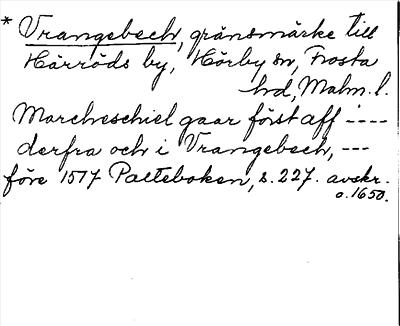 * Vrangebech, gränsmärke till
Härröds by, Hörby sn, Frosta
hd, Malm. l.
Marcheschiel gaar först aff i----
derfra och i Vrangebech, ---
före 1517 Palteboken, s. 227. avskr.
o. 1650.